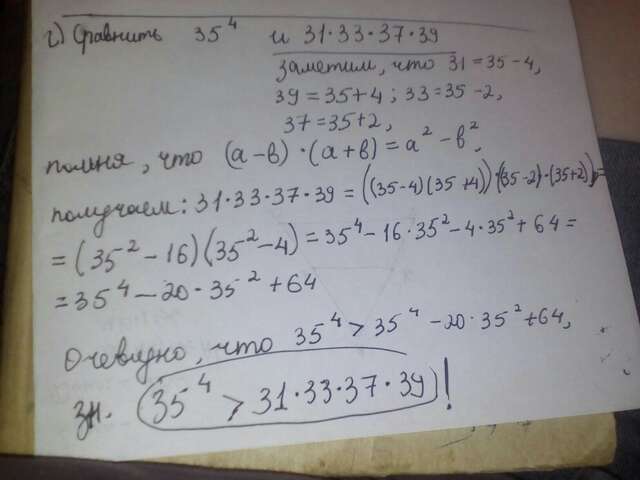 г) Сравнить 35⁴ и 31·33·37·39
заметим, что 31=35-4,
39=35+4; 33=35-2,
37=35+2,
помня, что (а-в)·(а+в)=а²-в²,
получаем: 31·33·37·39=((35-4)(35+4))·(35-2)·(35+2))=
=(35²-16)(35²-4)=35⁴-16·35²-4·35²+64=
=35⁴-20·35²+64
Очевидно, что 35⁴>35⁴-20·35²+64,
зн. 35⁴>31·33·37·39!